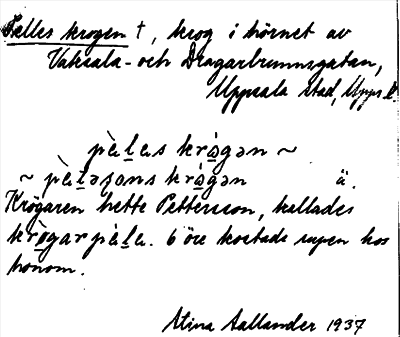 Palles krogen †, krog i hörnet av
Vaksala- och Dragarbrunnsgatan,
Uppsala stad, Uppl.
pàlas krògən ~
~ pàtəsɔns krògən ä.
Krögaren hette Pettersson, kallades
krògarpàla. 6 öre kostade supen hos
honom.
Stina Sallander 1937